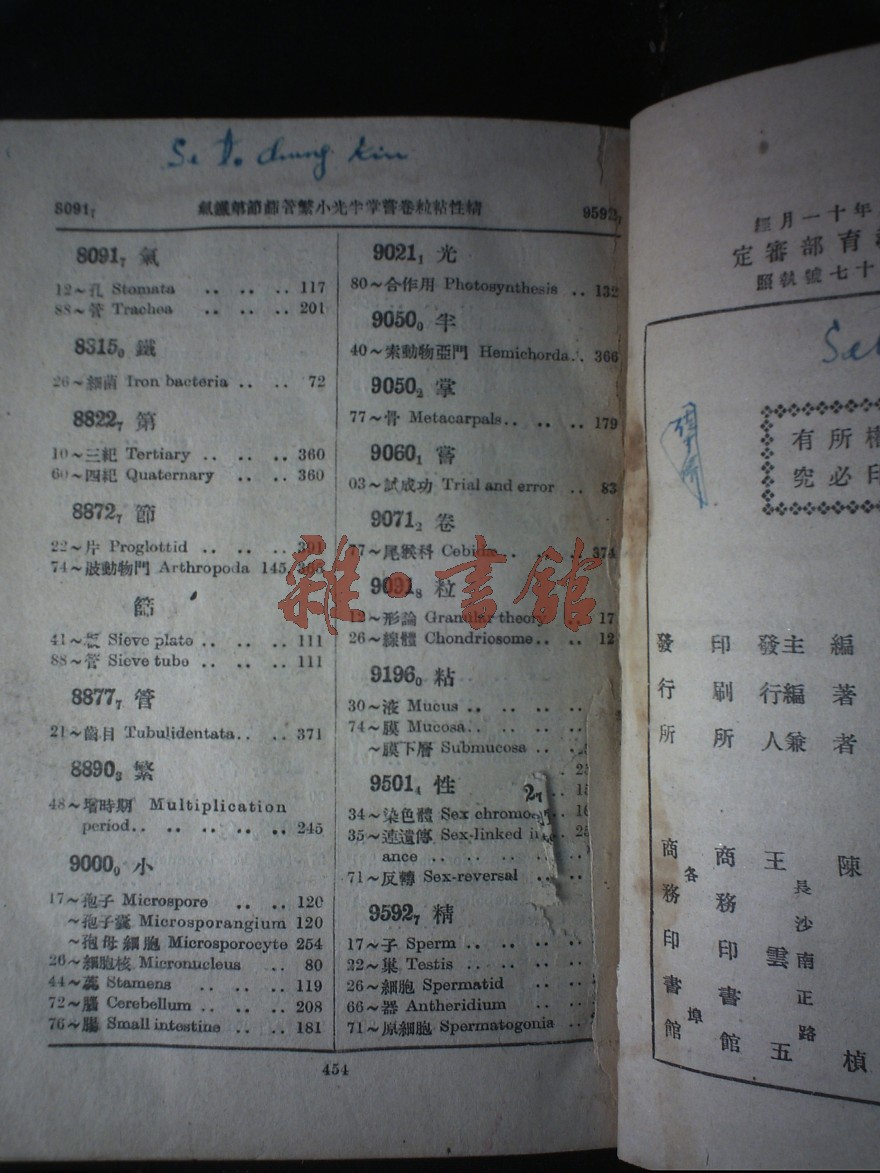 Se To chung Kin
8091₇ 氣鐵第節篩管繁小光半掌嘗卷粒粘性精 9592₇
8091₇ 氣
12~孔 Stomata .. .. .. 117
88~管 Trachea .. .. .. 201
8315₀ 鐵
26~細菌 Iron bacteria .. .. 72
8822₇ 第
10~三紀 Tertiary .. .. .. 360
60~四紀 Quaternary .. .. 360
8872₇ 節
22~片 Proglottid .. .. .. 391
74~肢動物門 Arthropoda 145, 366
篩
41~板 Sieve plate .. .. .. 111
88~管 Sieve tube .. .. .. 111
8877₇ 管
21~齒目 Tubulidentata.. .. 371
8890₃ 繁
48~增時期 Multiplication
period.. .. .. .. .. 245
9000₀ 小
17~孢子 Microspore .. .. 120
~孢子囊 Microsporangium 120
~孢母細胞 Microsporocyte 254
26~細胞核 Micronucleus .. 80
44~蕊 Stamens .. .. .. 119
72~腦 Cerebellum .. .. .. 208
76~腸 Small intestine .. .. 181
9021₁ 光
80~合作用 Photosynthesis .. 132
9050₀ 半
40~索動物亞門 Hemichorda.. 366
9050₂ 掌
77~骨 Metacarpals.. .. .. 179
9060₁ 嘗
03~試成功 Trial and error .. 83
9071₂ 卷
77~尾猴科 Cebidæ.. .. .. 374
9091₈ 粒
12~形論 Granular theory .. 17
26~線體 Chondriosome.. .. 12
9196₀ 粘
30~液 Mucus .. .. .. ..
74~膜 Mucosa.. .. .. ..
~膜下層 Submucosa .. ..
9501₄ 性
2₇
34~染色體 Sex chromo
35~連遺傳 Sex-linked
ance .. .. .. ..
71~反轉 Sex-reversal ..
9592₇ 精
17~子 Sperm .. .. .. ..
22~巢 Testis .. .. .. ..
26~細胞 Spermatid .. ..
66~器 Antheridium .. ..
71~原細胞 Spermatogonia ..
454
雜·書館
年十一月經
教育部審定
十七號執照
權所有
印必究
編著者 陳 楨
主編兼發行人 王雲五
長沙南正路
印刷所 商務印書館
發行所 商務印書館
各埠